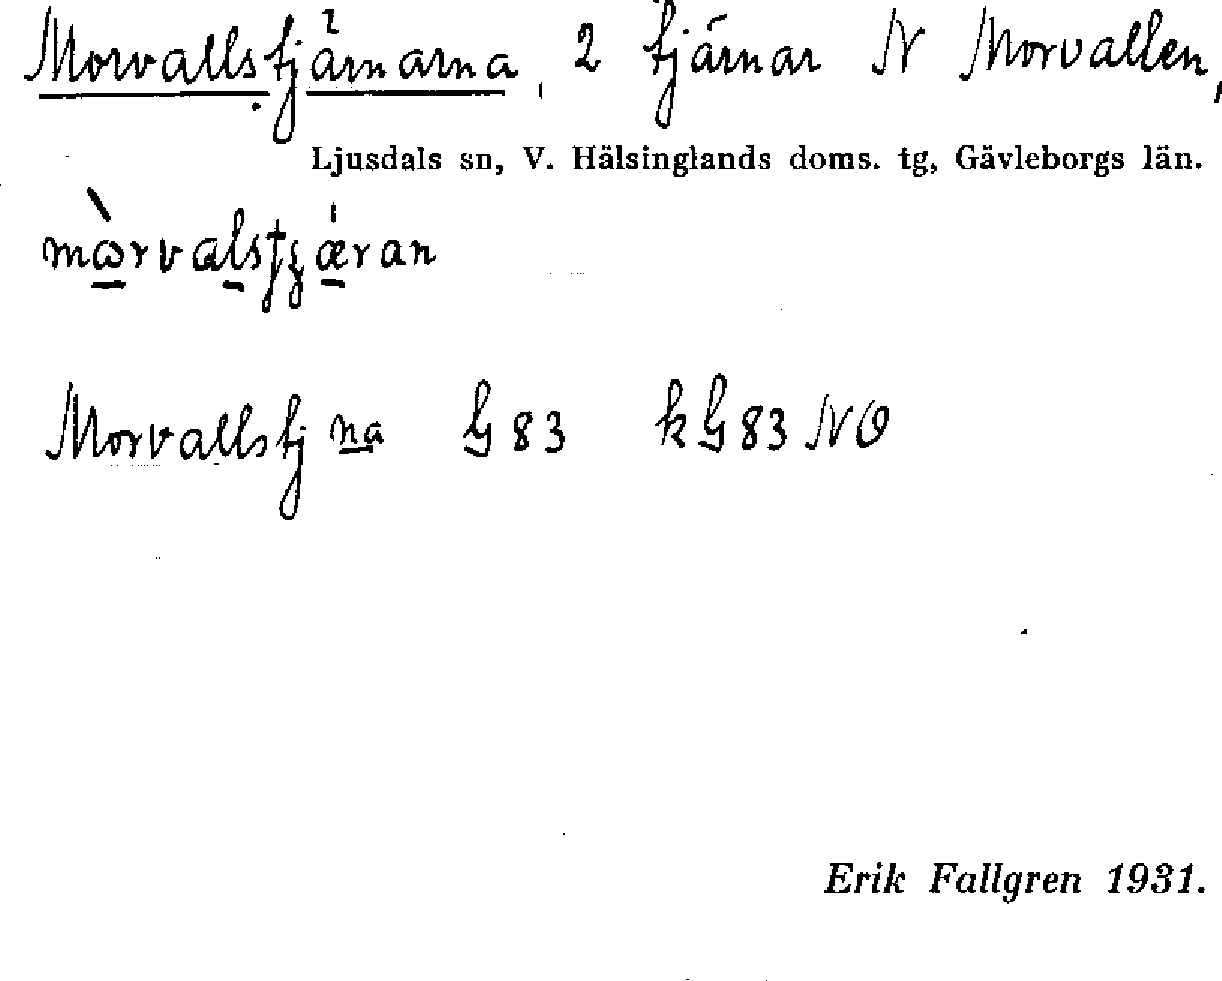 Morvallstjärnarna, 2 tjärnar N Morvallen,
Ljusdals sn, V. Hälsinglands doms. tg, Gävleborgs län.
Morvallstj na G 83 k G 83 NO
Erik Fallgren 1931.